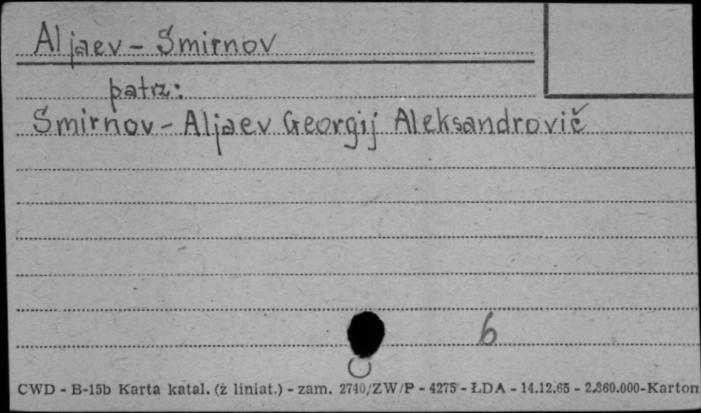 Aljaev - Smirnov
patrz:
Smirnov - Aljaev Georgij Aleksandrovič
6
CWD - B-15b Karta katal. (ż liniat.) - zam. 2740/ZW/P - 4275 - ŁDA - 14.12.65 - 2.360.000-Karton